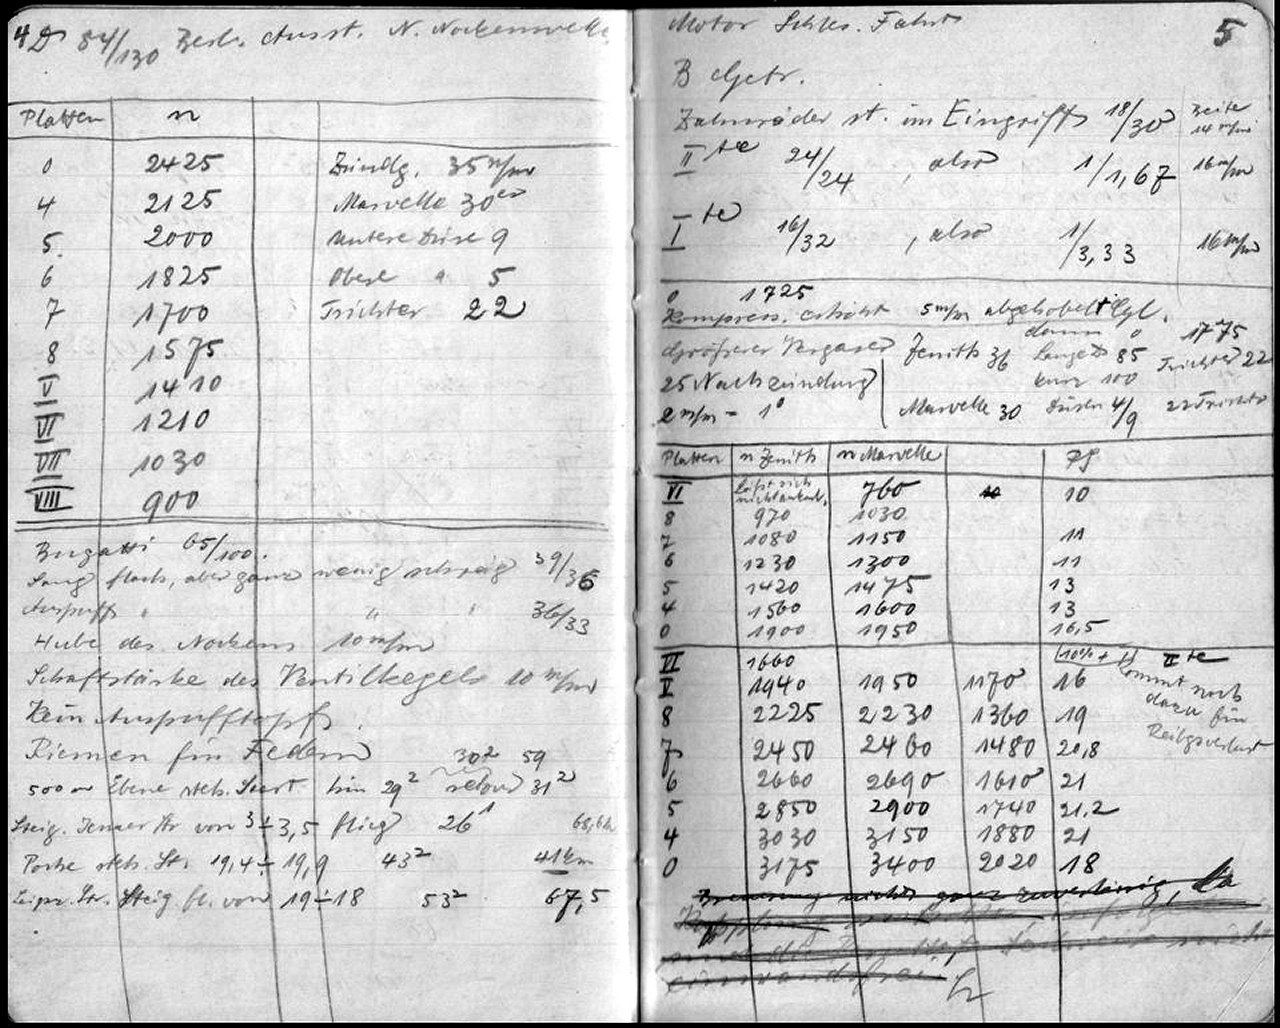 4 D 84/130 Berl. Ausst. N. Nockenwelle
Platten n
0 2425 Zündg. 35 m/m
4 2125 Marvelle 30er
5. 2000 untere Düse 9
6 1825 obere " 5
7 1700 Trichter 22
8 1575
V 1410
VI 1210
VII 1030
VIII 900
Bugatti 65/100.
Saug flach, aber ganz wenig schräg 39/36
Auspuff " " " 36/33
Hube des Nockens 10 m/m
Schaftstärke des Ventilkegels 10 m/m
Kein Auspufftopf.
Riemen für Federn
30² 59
500 m Ebene steh. Start hin 29² retour 31²
Steig. Jenaer Str von 3 ÷ 3,5 flieg 26¹ 68,6
steh. St. 19,4 ÷ 19,9 43² 41 km
Leipz. Str. Steig fl. von 19 ÷ 18 53² 67,5
5
Motor Schles. Fahrt
B Getr.
Zahnräder st. im Eingriff 18/30 Breite 14 m/m
II te 24/24, also 1/1,67 16 m/m
I te 16/32, also 1/3,33 16 m/m
0 1725
Kompress. erhöht 5 m/m abgehobelt Cyl.
dann 0 1775
Grösserer Vergaser Zenith 36 lange D 85 Trichter 22
25 Nachzündung kurz 100
2 m/m = 1° Marvelle 30 Düsen 4/9 22 Trichter
Platten n Zenith n Marvelle PS
VI läßt sich nicht 760 10 10
8 970 1030
7 1080 1150 11
6 1230 1300 11
5 1420 1475 13
4 1560 1600 13
0 1900 1950 16,5
VI 1660 10% + II te
V 1940 1950 1170 16 kommt noch
8 2225 2230 1360 19 dazu für
7 2450 2460 1480 20,8 Reibgsverlust
6 2660 2690 1610 21
5 2850 2900 1740 21,2
4 3030 3150 1880 21
0 3175 3400 2020 18
Bremsung nicht ganz zuverlässig, da
einwandsfrei.